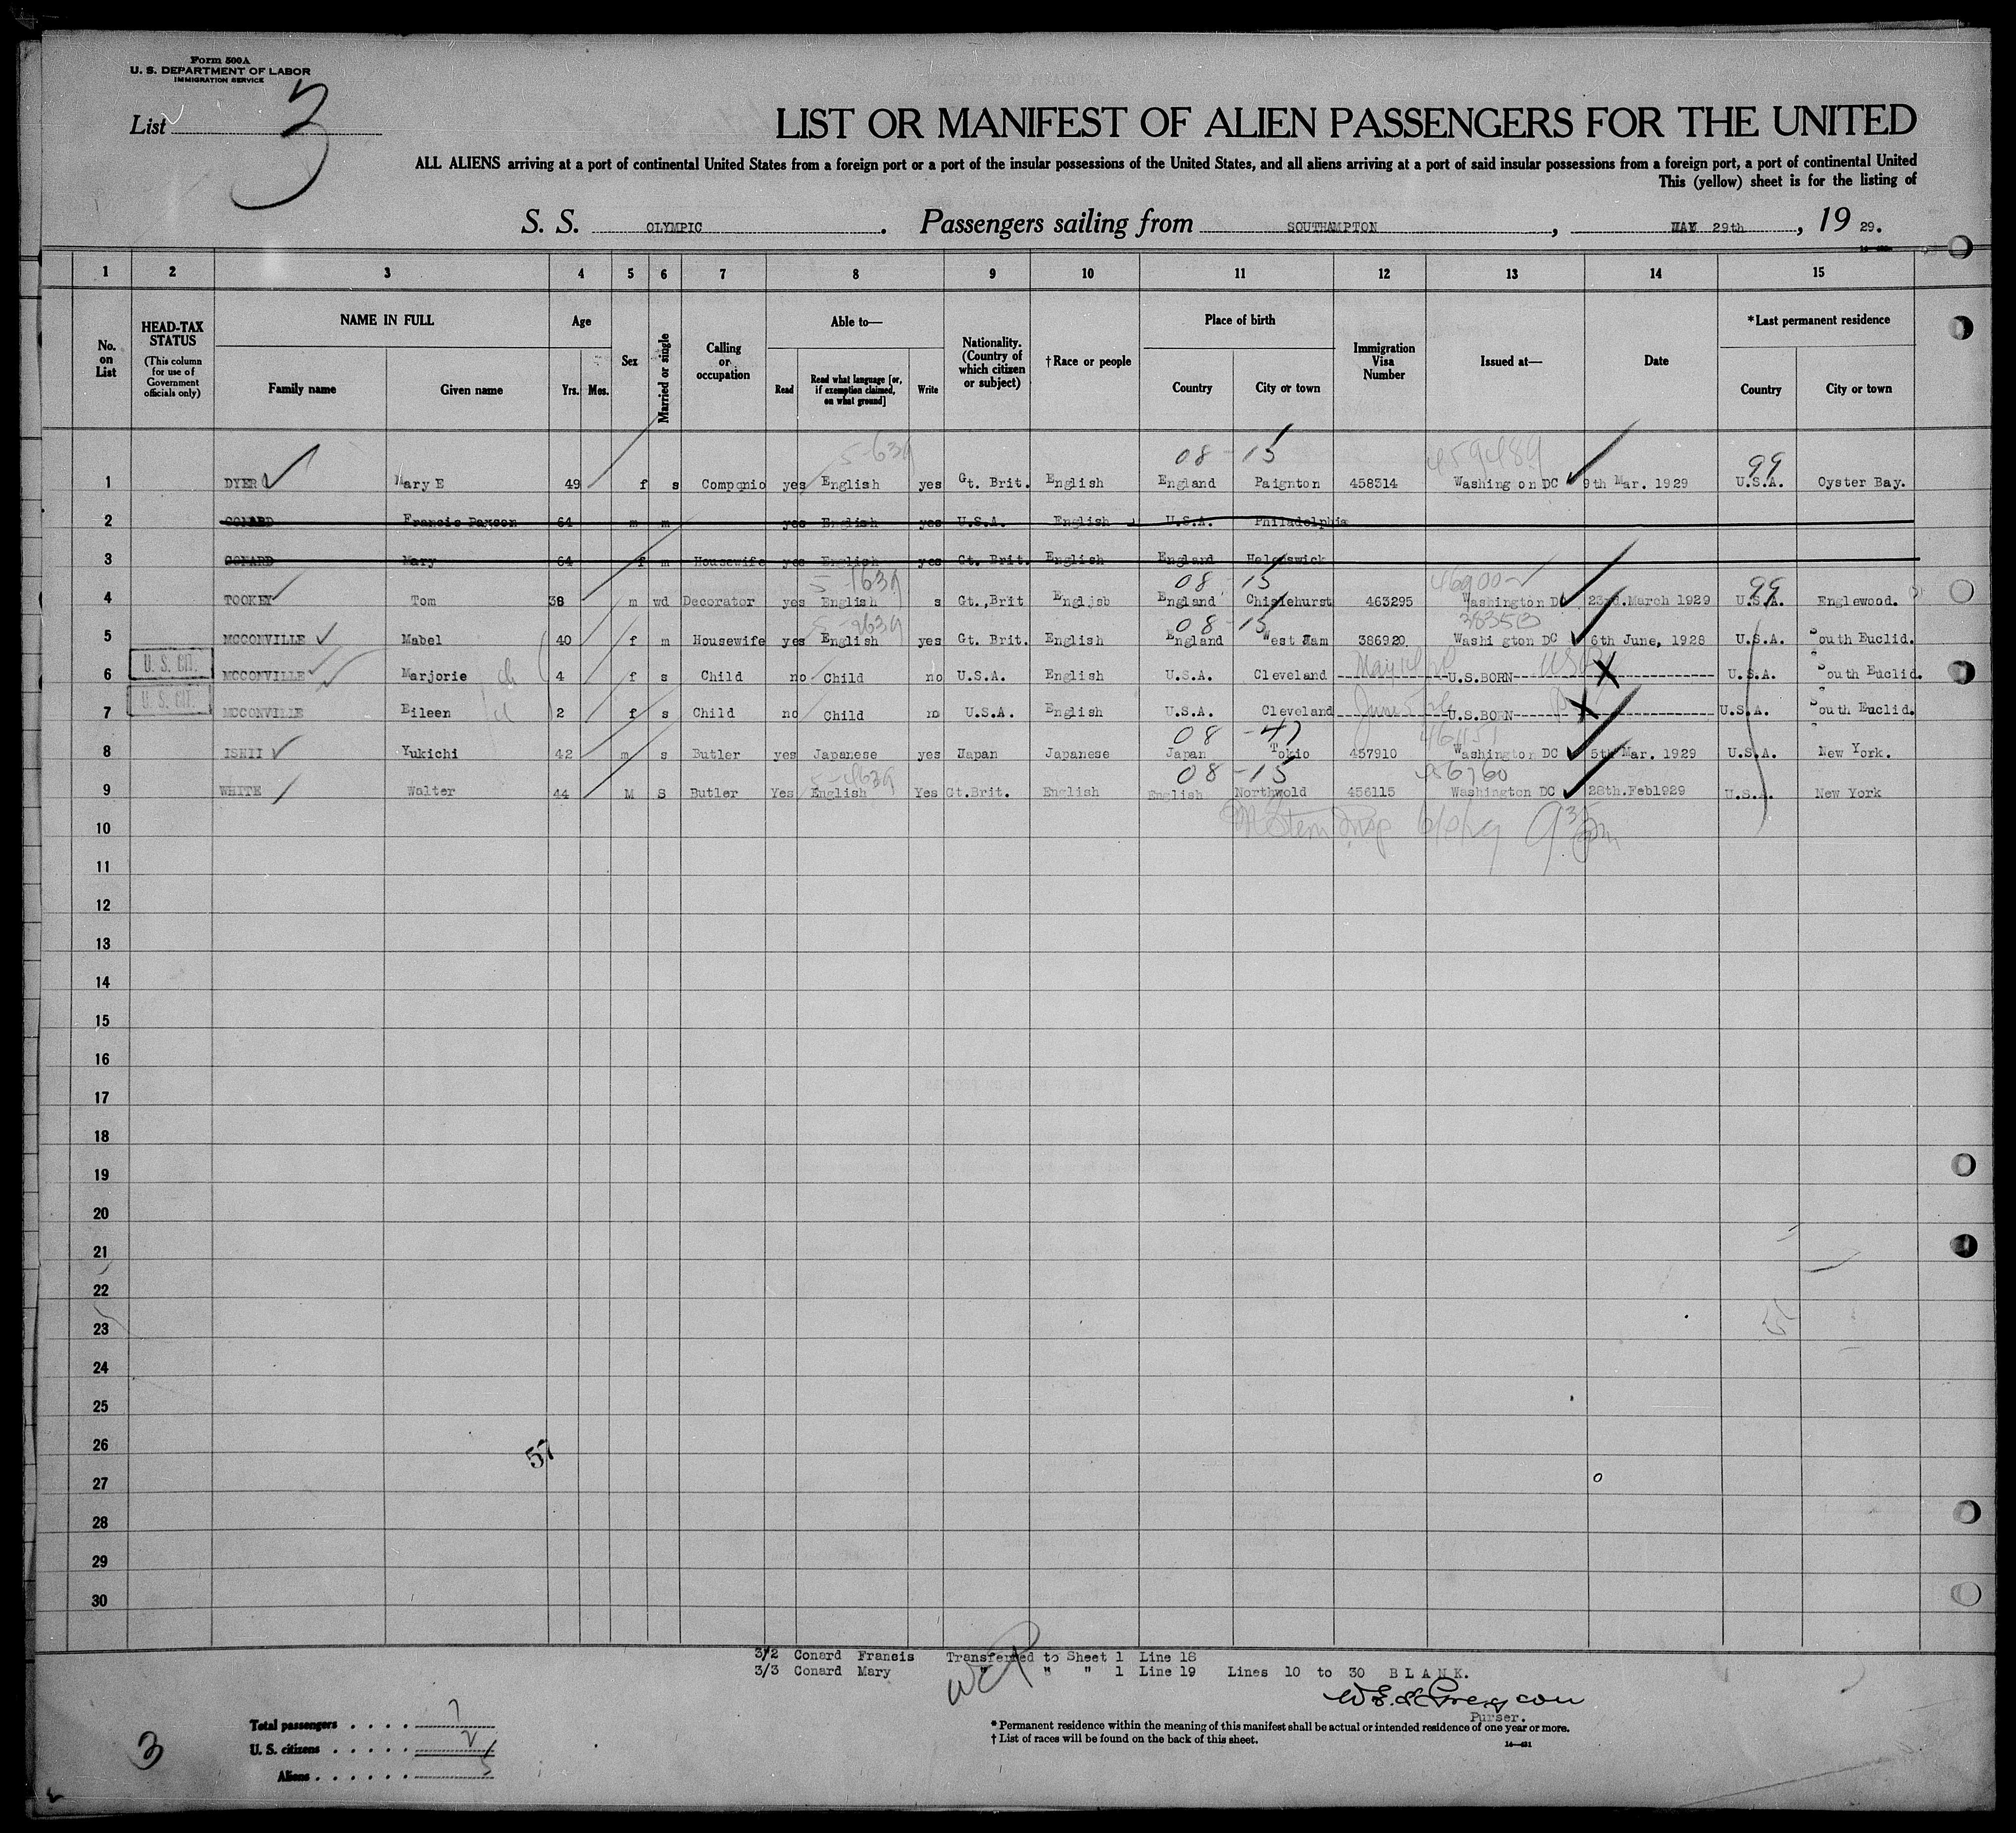 Form 500A
U. S. DEPARTMENT OF LABOR
IMMIGRATION SERVICE
List 3
LIST OR MANIFEST OF ALIEN PASSENGERS FOR THE UNITED
ALL ALIENS arriving at a port of continental United States from a foreign port or a port of the insular possessions of the United States, and all aliens arriving at a port of said insular possessions from a foreign port, a port of continental United
This (yellow) sheet is for the listing of
S. S. OLYMPIC. Passengers sailing from SOUTHAMPTON, MAY 29th, 19 29.
1 2 3 4 5 6 7 8 9 10 11 12 13 14 15
No. on List
HEAD-TAX STATUS (This column for use of Government officials only)
NAME IN FULL Family name Given name
Age Yrs. Mos.
Sex
Married or single
Calling or occupation
Able to— Read Read what language [or, if exemption claimed, on what ground] Write
Nationality. (Country of which citizen or subject)
†Race or people
Place of birth Country City or town
Immigration Visa Number
Issued at—
Date
*Last permanent residence Country City or town
5-639 08-15 459489 99
1 DYER Mary E 49 f s Companio yes English yes Gt. Brit. English England Paignton 458314 Washington DC 9th Mar. 1929 U.S.A. Oyster Bay.
2 CONARD Francis Paxson 64 m m yes English yes U.S.A. English U.S.A. Philadelphia
3 CONARD Mary 64 f m Housewife yes English yes Gt. Brit. English England Helenswick
08-15 99
4 TOOKEY Tom 38 m wd Decorator yes English s Gt.,Brit Engljsb England Chislehurst 463295 Washington DC 23rd.March 1929 U.S.A. Englewood.
08-15
5 MCCONVILLE Mabel 40 f m Housewife yes English yes Gt. Brit. English England West Ham 386920 Washi gton DC 6th June, 1928 U.S.A. South Euclid.
U. S. CIT.
6 MCCONVILLE Marjorie 4 f s Child no Child no U.S.A. English U.S.A. Cleveland U.S.BORN U.S.A. South Euclid.
U. S. CIT.
7 MCCONVILLE Eileen 2 f s Child no Child no U.S.A. English U.S.A. Cleveland U.S.BORN U.S.A. South Euclid.
08-47 46151
8 ISHII Yukichi 42 m s Butler yes Japanese yes Japan Japanese Japan Tokio 457910 Washington DC 5th Mar. 1929 U.S.A. New York.
08-15 456760
9 WHITE Walter 44 M S Butler Yes English Yes Gt.Brit. English English Northwold 456115 Washington DC 28th.Feb1929 U.S.A. New York
10
11
12
13
14
15
16
17
18
19
20
21
22
23
24
25
26
57
27
28
29
30
3/2 Conard Francis Transferred to Sheet 1 Line 18
3/3 Conard Mary " " " 1 Line 19 Lines 10 to 30 B L A N K.
Purser.
Total passengers . . . . 7
U. S. citizens . . . . . 2
Aliens . . . . . . 5
3
* Permanent residence within the meaning of this manifest shall be actual or intended residence of one year or more.
† List of races will be found on the back of this sheet.
14—431